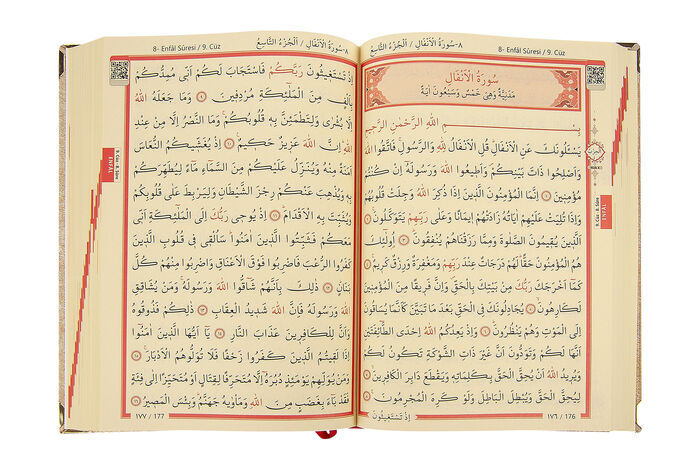 ٨-سُورَةُ الْاَنْفَالِ / اَلْجُزْءُ التَّاسِعُ
8- Enfâl Sûresi / 9. Cüz
سُورَةُ الْاَنْفَالِ
مَدَنِيَّةٌ وَهِيَ خَمْسٌ وَسَبْعُونَ اٰيَةً
بِسْـــمِ اللّٰهِ الرَّحْمٰنِ الرَّحٖيمِ
يَسْـَٔلُونَكَ عَنِ الْاَنْفَالِ قُلِ الْاَنْفَالُ لِلّٰهِ وَالرَّسُولِ فَاتَّقُوا اللّٰهَ
وَاَصْلِحُوا ذَاتَ بَيْنِكُمْ وَاَطٖيعُوا اللّٰهَ وَرَسُولَهُٓ اِنْ كُنْتُمْ
مُؤْمِنٖينَ ١ اِنَّمَا الْمُؤْمِنُونَ الَّذٖينَ اِذَا ذُكِرَ اللّٰهُ وَجِلَتْ قُلُوبُهُمْ
وَاِذَا تُلِيَتْ عَلَيْهِمْ اٰيَاتُهُ زَادَتْهُمْ اٖيمَانًا وَعَلٰى رَبِّهِمْ يَتَوَكَّلُونَ ٢
اَلَّذٖينَ يُقٖيمُونَ الصَّلٰوةَ وَمِمَّا رَزَقْنَاهُمْ يُنْفِقُونَ ٣ اُو۬لٰٓئِكَ
هُمُ الْمُؤْمِنُونَ حَقًّا لَهُمْ دَرَجَاتٌ عِنْدَ رَبِّهِمْ وَمَغْفِرَةٌ وَرِزْقٌ كَرٖيمٌ ٤
كَمَٓا اَخْرَجَكَ رَبُّكَ مِنْ بَيْتِكَ بِالْحَقِّ وَاِنَّ فَرٖيقًا مِنَ الْمُؤْمِنٖينَ
لَكَارِهُونَ ٥ يُجَادِلُونَكَ فِي الْحَقِّ بَعْدَ مَا تَبَيَّنَ كَاَنَّمَا يُسَاقُونَ
اِلَى الْمَوْتِ وَهُمْ يَنْظُرُونَ ٦ وَاِذْ يَعِدُكُمُ اللّٰهُ اِحْدَى الطَّٓائِفَتَيْنِ
اَنَّهَا لَكُمْ وَتَوَدُّونَ اَنَّ غَيْرَ ذَاتِ الشَّوْكَةِ تَكُونُ لَكُمْ
وَيُرٖيدُ اللّٰهُ اَنْ يُحِقَّ الْحَقَّ بِكَلِمَاتِهٖ وَيَقْطَعَ دَابِرَ الْكَافِرٖينَ ٧
لِيُحِقَّ الْحَقَّ وَيُبْطِلَ الْبَاطِلَ وَلَوْ كَرِهَ الْمُجْرِمُونَ ٨
اِذْ تَسْتَغٖيثُونَ
١٧٦ / 176
9. Cüz - 8. Sûre
ENFÂL
٨-سُورَةُ الْاَنْفَالِ / اَلْجُزْءُ التَّاسِعُ
8- Enfâl Sûresi / 9. Cüz
اِذْ تَسْتَغٖيثُونَ رَبَّكُمْ فَاسْتَجَابَ لَكُمْ اَنّٖي مُمِدُّكُمْ
بِاَلْفٍ مِنَ الْمَلٰٓئِكَةِ مُرْدِفٖينَ ٩ وَمَا جَعَلَهُ اللّٰهُ
اِلَّا بُشْرٰى وَلِتَطْمَئِنَّ بِهٖ قُلُوبُكُمْ وَمَا النَّصْرُ اِلَّا مِنْ عِنْدِ
اللّٰهِ اِنَّ اللّٰهَ عَزٖيزٌ حَكٖيمٌ ١٠ اِذْ يُغَشّٖيكُمُ النُّعَاسَ
اَمَنَةً مِنْهُ وَيُنَزِّلُ عَلَيْكُمْ مِنَ السَّمَٓاءِ مَٓاءً لِيُطَهِّرَكُمْ
بِهٖ وَيُذْهِبَ عَنْكُمْ رِجْزَ الشَّيْطَانِ وَلِيَرْبِطَ عَلٰى قُلُوبِكُمْ
وَيُثَبِّتَ بِهِ الْاَقْدَامَ ١١ اِذْ يُوحٖي رَبُّكَ اِلَى الْمَلٰٓئِكَةِ اَنّٖي
مَعَكُمْ فَثَبِّتُوا الَّذٖينَ اٰمَنُوا سَاُلْقٖي فٖي قُلُوبِ الَّذٖينَ
كَفَرُوا الرُّعْبَ فَاضْرِبُوا فَوْقَ الْاَعْنَاقِ وَاضْرِبُوا مِنْهُمْ كُلَّ
بَنَانٍ ١٢ ذٰلِكَ بِاَنَّهُمْ شَٓاقُّوا اللّٰهَ وَرَسُولَهُ وَمَنْ يُشَاقِقِ
اللّٰهَ وَرَسُولَهُ فَاِنَّ اللّٰهَ شَدٖيدُ الْعِقَابِ ١٣ ذٰلِكُمْ فَذُوقُوهُ
وَاَنَّ لِلْكَافِرٖينَ عَذَابَ النَّارِ ١٤ يَٓا اَيُّهَا الَّذٖينَ اٰمَنُٓوا
اِذَا لَقٖيتُمُ الَّذٖينَ كَفَرُوا زَحْفًا فَلَا تُوَلُّوهُمُ الْاَدْبَارَ ١٥
وَمَنْ يُوَلِّهِمْ يَوْمَئِذٍ دُبُرَهُٓ اِلَّا مُتَحَرِّفًا لِقِتَالٍ اَوْ مُتَحَيِّزًا اِلٰى فِئَةٍ
فَقَدْ بَٓاءَ بِغَضَبٍ مِنَ اللّٰهِ وَمَأْوٰيهُ جَهَنَّمُ وَبِئْسَ الْمَصٖيرُ ١٦
١٧٧ / 177
9. Cüz - 8. Sûre
ENFÂL